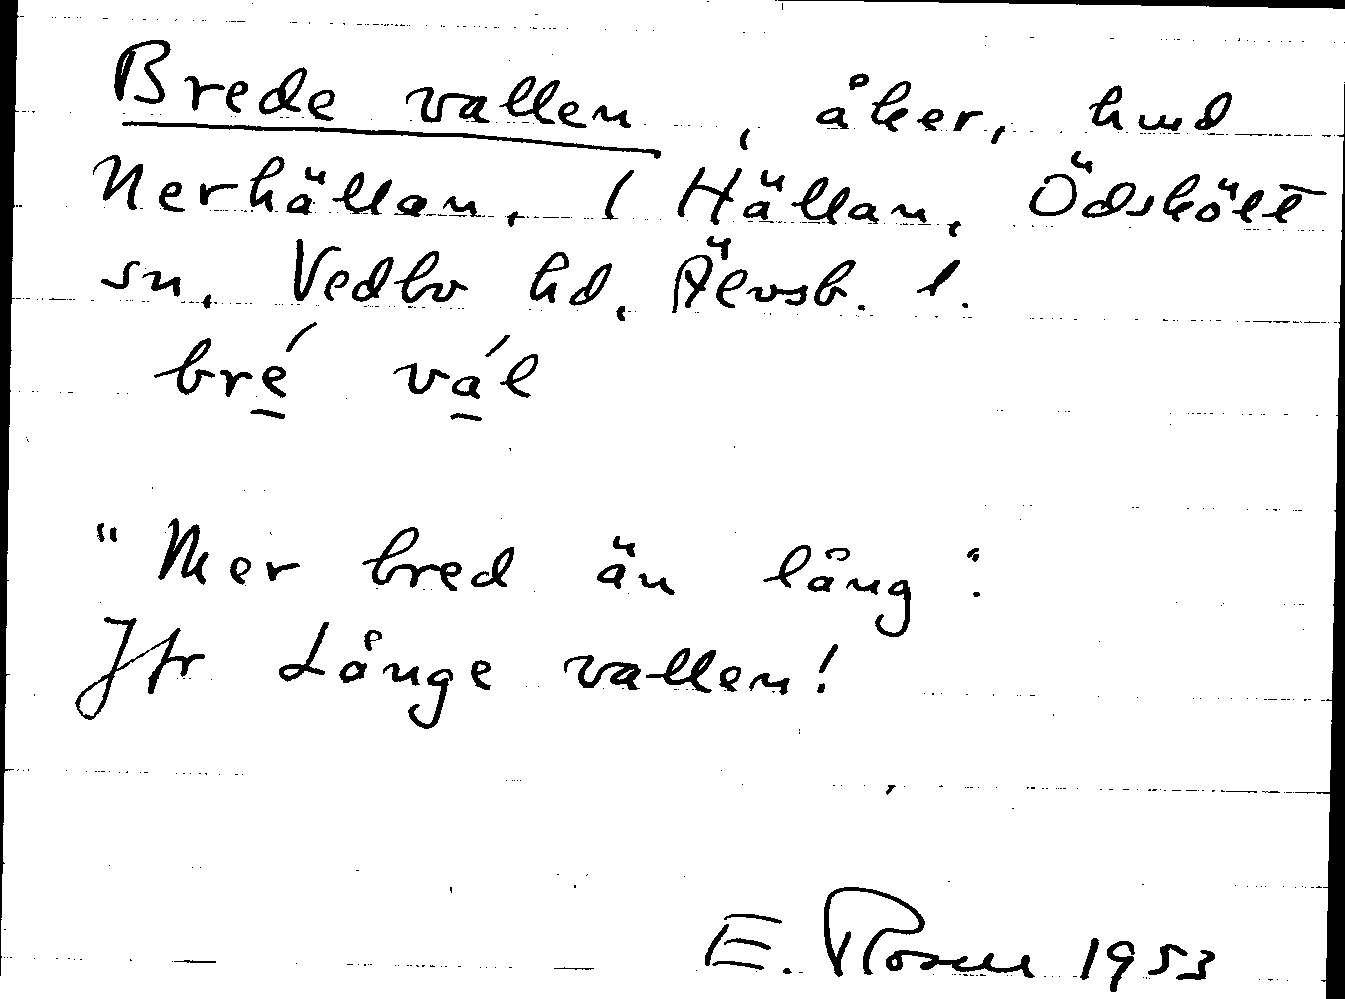 Brede vallen, åker, hmd
Nerhällan, 1 Hällan, Ödskölt
sn, Vedbo hd, Älvsb. l.
bré vál
"Mer bred än lång".
Jfr Långe vallen!
E. Rosell 1953